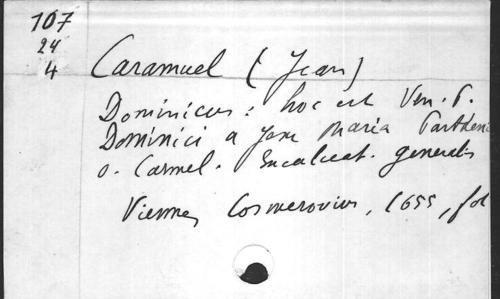 107
24
4
Caramuel (Jean)
Dominicus : hoc est Ven. P.
Dominici a Jesu Maria Parthen
o. Carmel. Excalceat. generalis
Vienne, Cosmerovius, 1655, fol